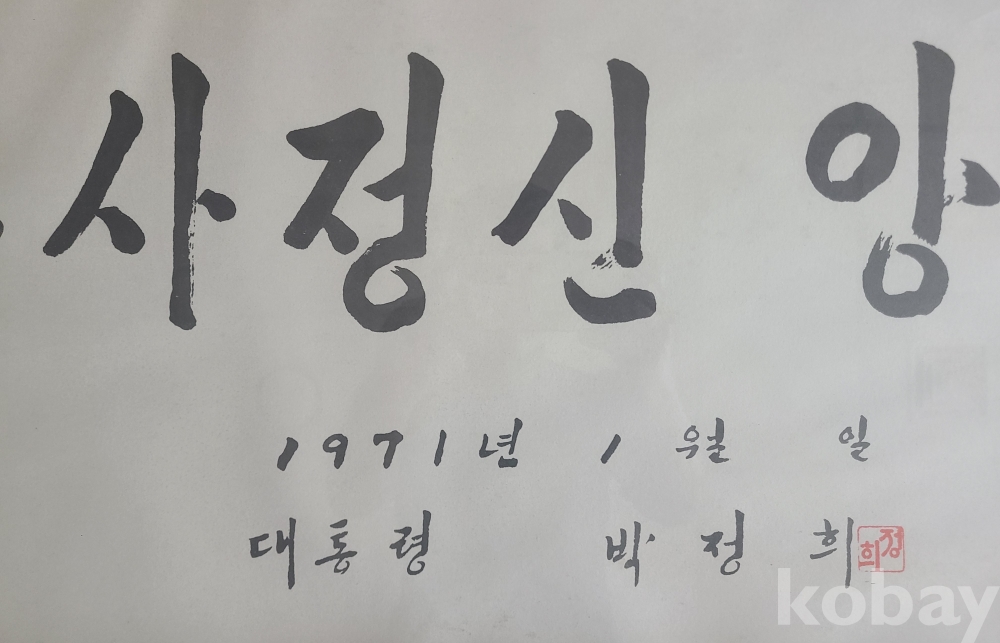 사정신 앙
1971년 1월 일
대통령 박정희
정희
kobay